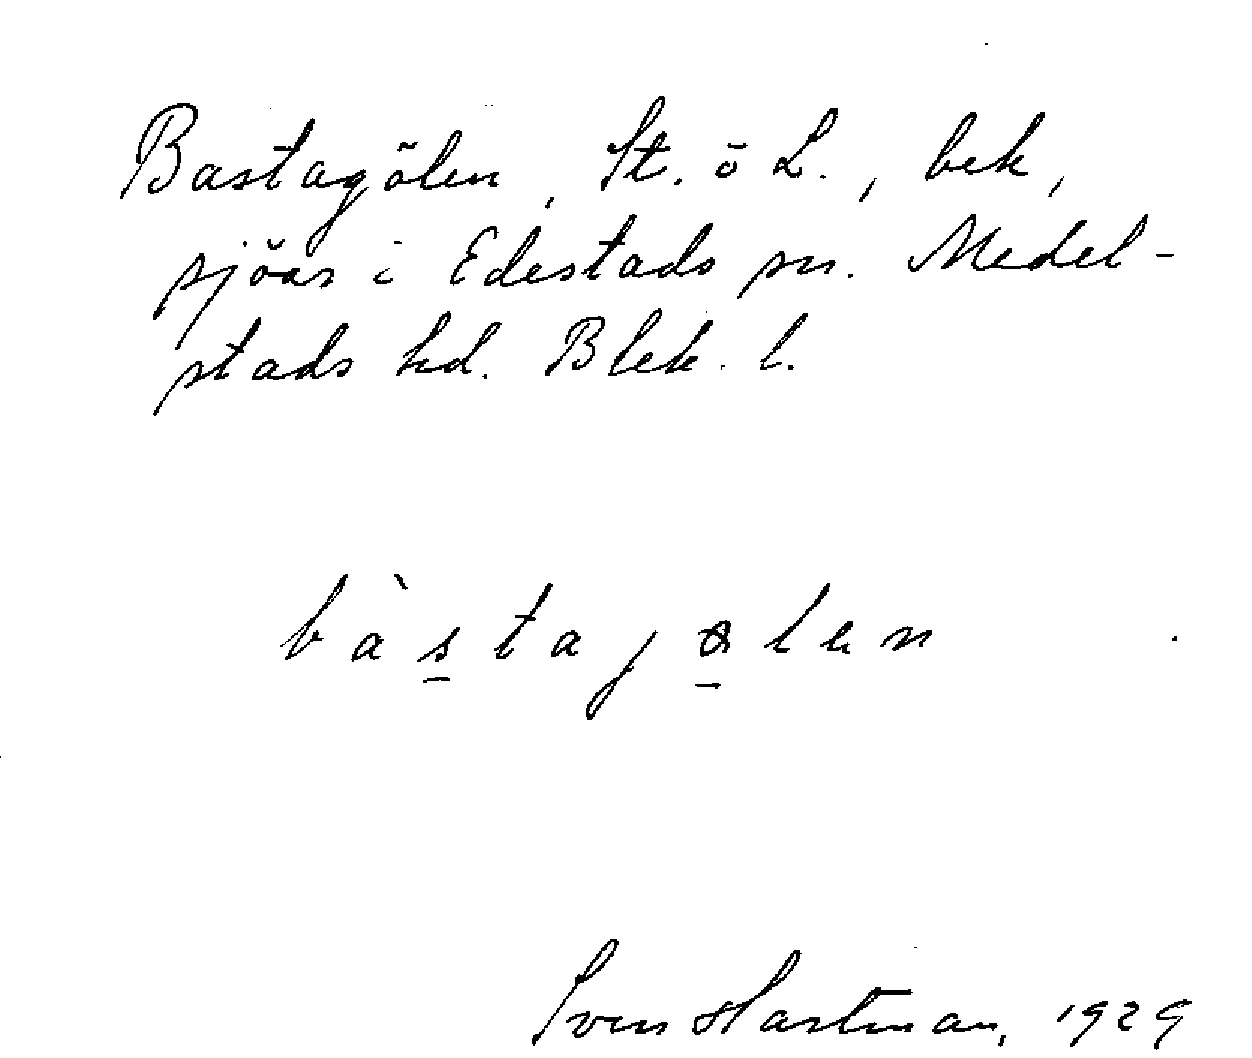 Bastagölen, St. ö L., bek,
sjöar i Edestads sn. Medel-
stads hd. Blek. l.
bàstajølen
Sven Hartman, 1929